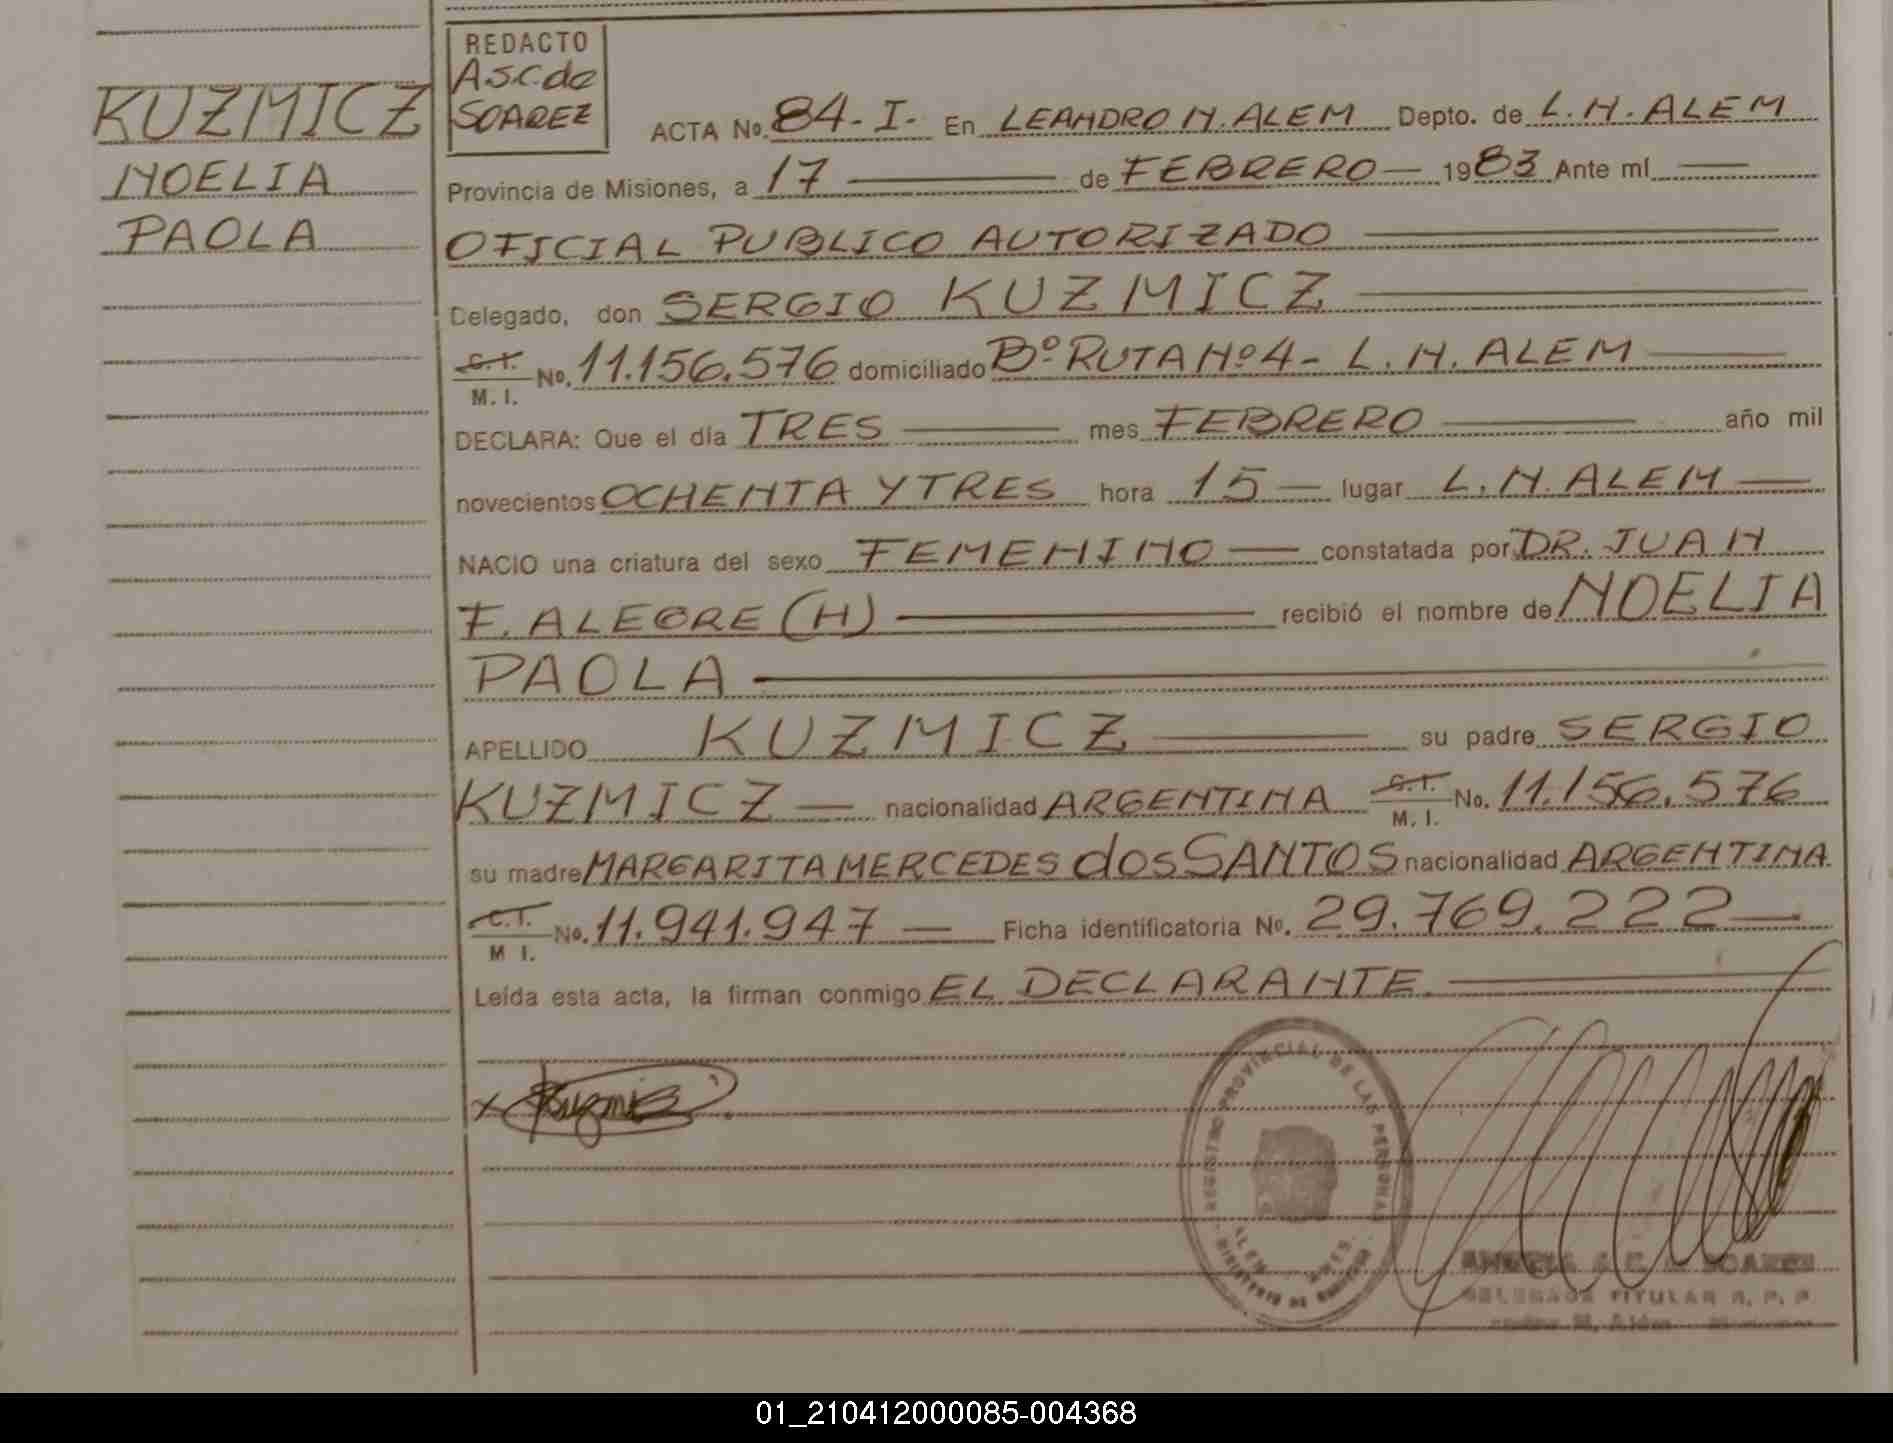 KUZMICZ
NOELIA
PAOLA
REDACTO
A.S.C. de
SOAREZ
ACTA No. 84-I- En LEANDRO N. ALEM Depto. de L.N. ALEM
Provincia de Misiones, a 17 de FEBRERO 1983 Ante mí
OFICIAL PUBLICO AUTORIZADO
Delegado, don SERGIO KUZMICZ
C.I. M.I. No. 11.156.576 domiciliado Bº RUTA Nº 4 - L.N. ALEM
DECLARA: Que el día TRES mes FEBRERO año mil
novecientos OCHENTA Y TRES hora 15 lugar L.N. ALEM
NACIO una criatura del sexo FEMENINO constatada por DR. JUAN
F. ALEGRE (H) recibió el nombre de NOELIA
PAOLA
APELLIDO KUZMICZ su padre SERGIO
KUZMICZ nacionalidad ARGENTINA C.I. M.I. No. 11.156.576
su madre MARGARITA MERCEDES dos SANTOS nacionalidad ARGENTINA
C.I. M I. No. 11.941.947 Ficha identificatoria No. 29.769.222
Leída esta acta, la firman conmigo EL DECLARANTE
x Kuzmicz
REGISTRO PROVINCIAL DE LAS PERSONAS
ALEM
MINISTERIO DE GOBIERNO
ANGELA S. C. de SOAREZ
DELEGADA TITULAR R. P. P.
N. Alem
01_210412000085-004368